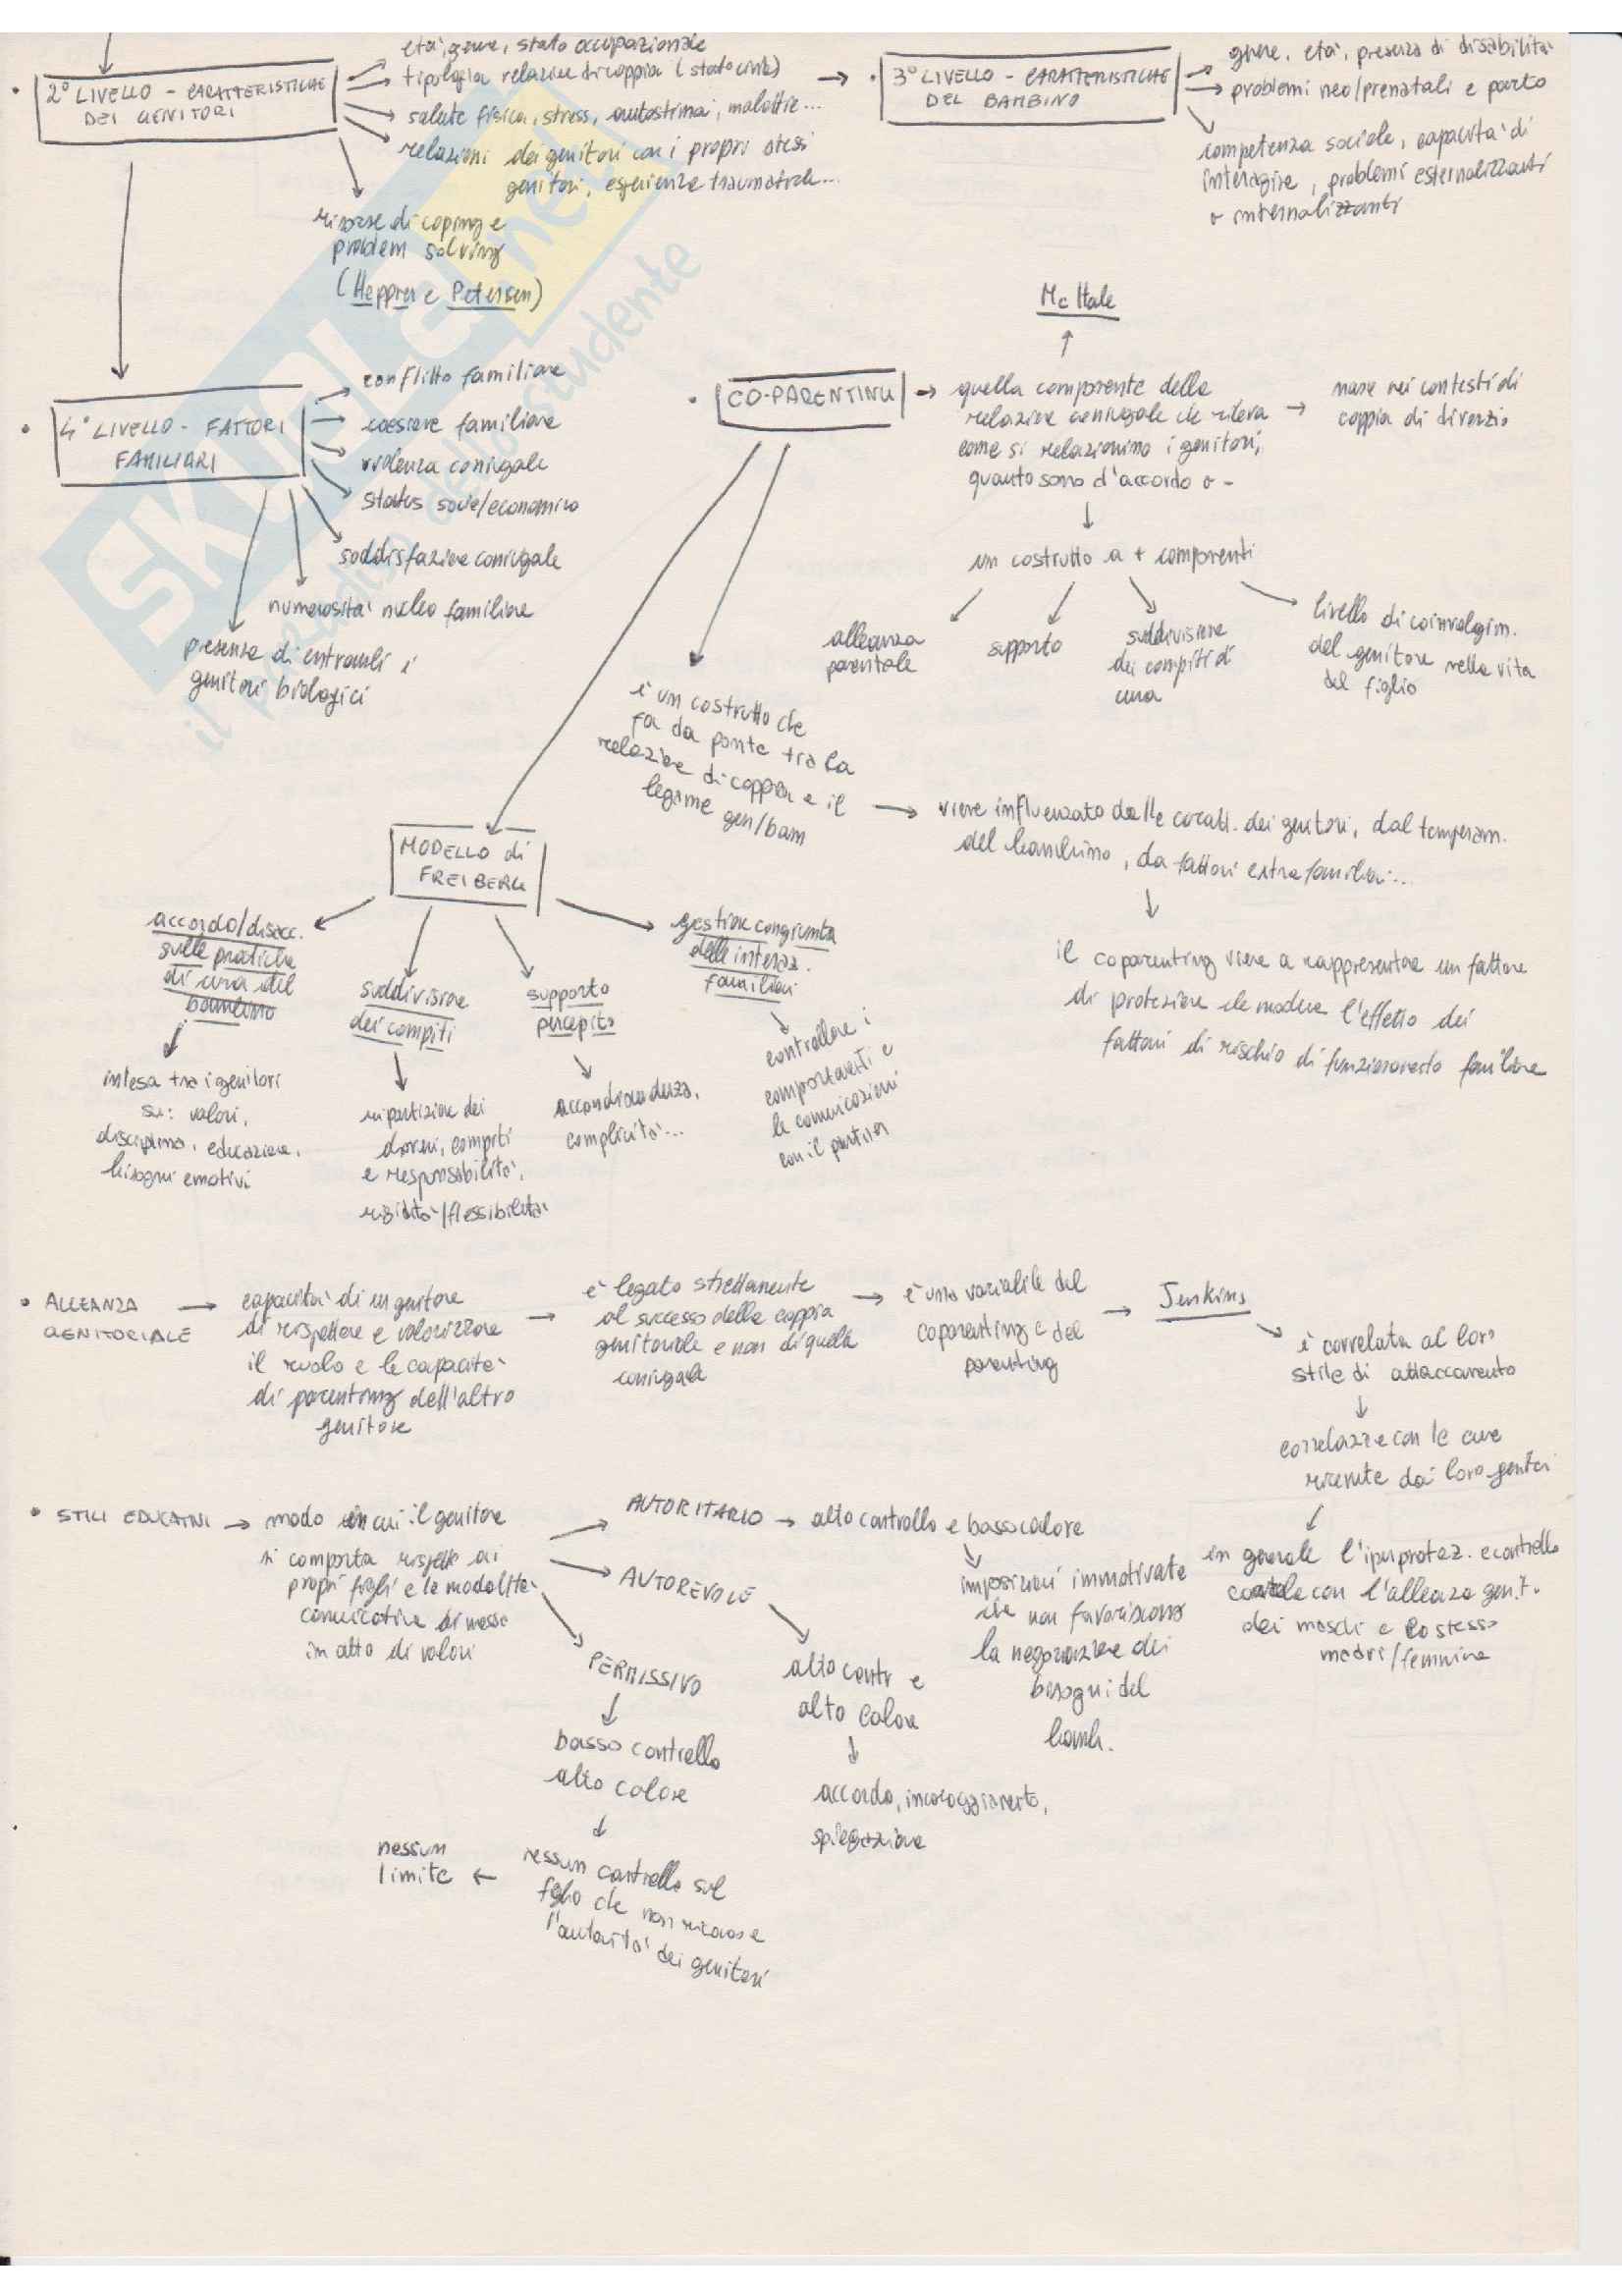 2° LIVELLO - CARATTERISTICHE
DEI GENITORI
età, genere, stato occupazionale
tipologia relazione di coppia (stato civile)
salute fisica, stress, autostima, malattie...
relazioni dei genitori con i propri stessi
genitori, esperienze traumatiche...
risorse di coping e
problem solving
(Heppner e Petersen)
3° LIVELLO - CARATTERISTICHE
DEL BAMBINO
genere, età, presenza di disabilità
problemi neo/prenatali e parto
competenza sociale, capacità di
interagire, problemi esternalizzanti
o internalizzanti
4° LIVELLO - FATTORI
FAMILIARI
conflitto familiare
coesione familiare
violenza coniugale
status socio/economico
soddisfazione coniugale
numerosità nucleo familiare
presenza di entrambi i
genitori biologici
Mc Hale
CO-PARENTING
quella componente della
relazione coniugale che rileva
come si relazionino i genitori,
quanto sono d'accordo o -
nasce nei contesti di
coppia di divorzio
un costrutto a + componenti
alleanza
parentale
supporto
suddivisione
dei compiti di
cura
livello di coinvolgim.
del genitore nella vita
del figlio
è un costrutto che
fa da ponte tra la
relazione di coppia e il
legame gen/bam
viene influenzato dalle caratt. dei genitori, dal temperam.
del bambino, da fattori extrafamiliari...
il coparenting viene a rappresentare un fattore
di protezione che modera l'effetto dei
fattori di rischio di funzionamento familiare
MODELLO di
FREIBERG
accordo/disacc.
sulle pratiche
di cura del
bambino
intesa tra i genitori
su: valori,
disciplina, educazione,
bisogni emotivi
suddivisione
dei compiti
ripartizione dei
doveri, compiti
e responsabilità,
rigidità/flessibilità
supporto
percepito
accondiscendenza,
complicità...
gestione congiunta
delle interaz.
familiari
controllare i
comportamenti e
le comunicazioni
con il partner
ALLEANZA
GENITORIALE
capacità di un genitore
di rispettare e valorizzare
il ruolo e le capacità
di parenting dell'altro
genitore
è legato strettamente
al successo della coppia
genitoriale e non di quella
coniugale
è una variabile del
coparenting e del
parenting
Jenkins
è correlata al loro
stile di attaccamento
correlazione con le cure
ricevute dai loro genitori
in generale l'iperprotez. e controllo
correla con l'alleanza genit.
dei maschi e lo stesso
madri/femmine
STILI EDUCATIVI
modo in cui il genitore
si comporta rispetto ai
propri figli e le modalità
comunicative di messa
in atto di valori
AUTORITARIO
alto controllo e basso calore
imposizioni immotivate
che non favoriscono
la negoziazione dei
bisogni del
bamb.
AUTOREVOLE
alto contr e
alto calore
accordo, incoraggiamento,
spiegazione
PERMISSIVO
basso controllo
alto calore
nessun controllo sul
figlio che non riconosce
l'autorità dei genitori
nessun
limite